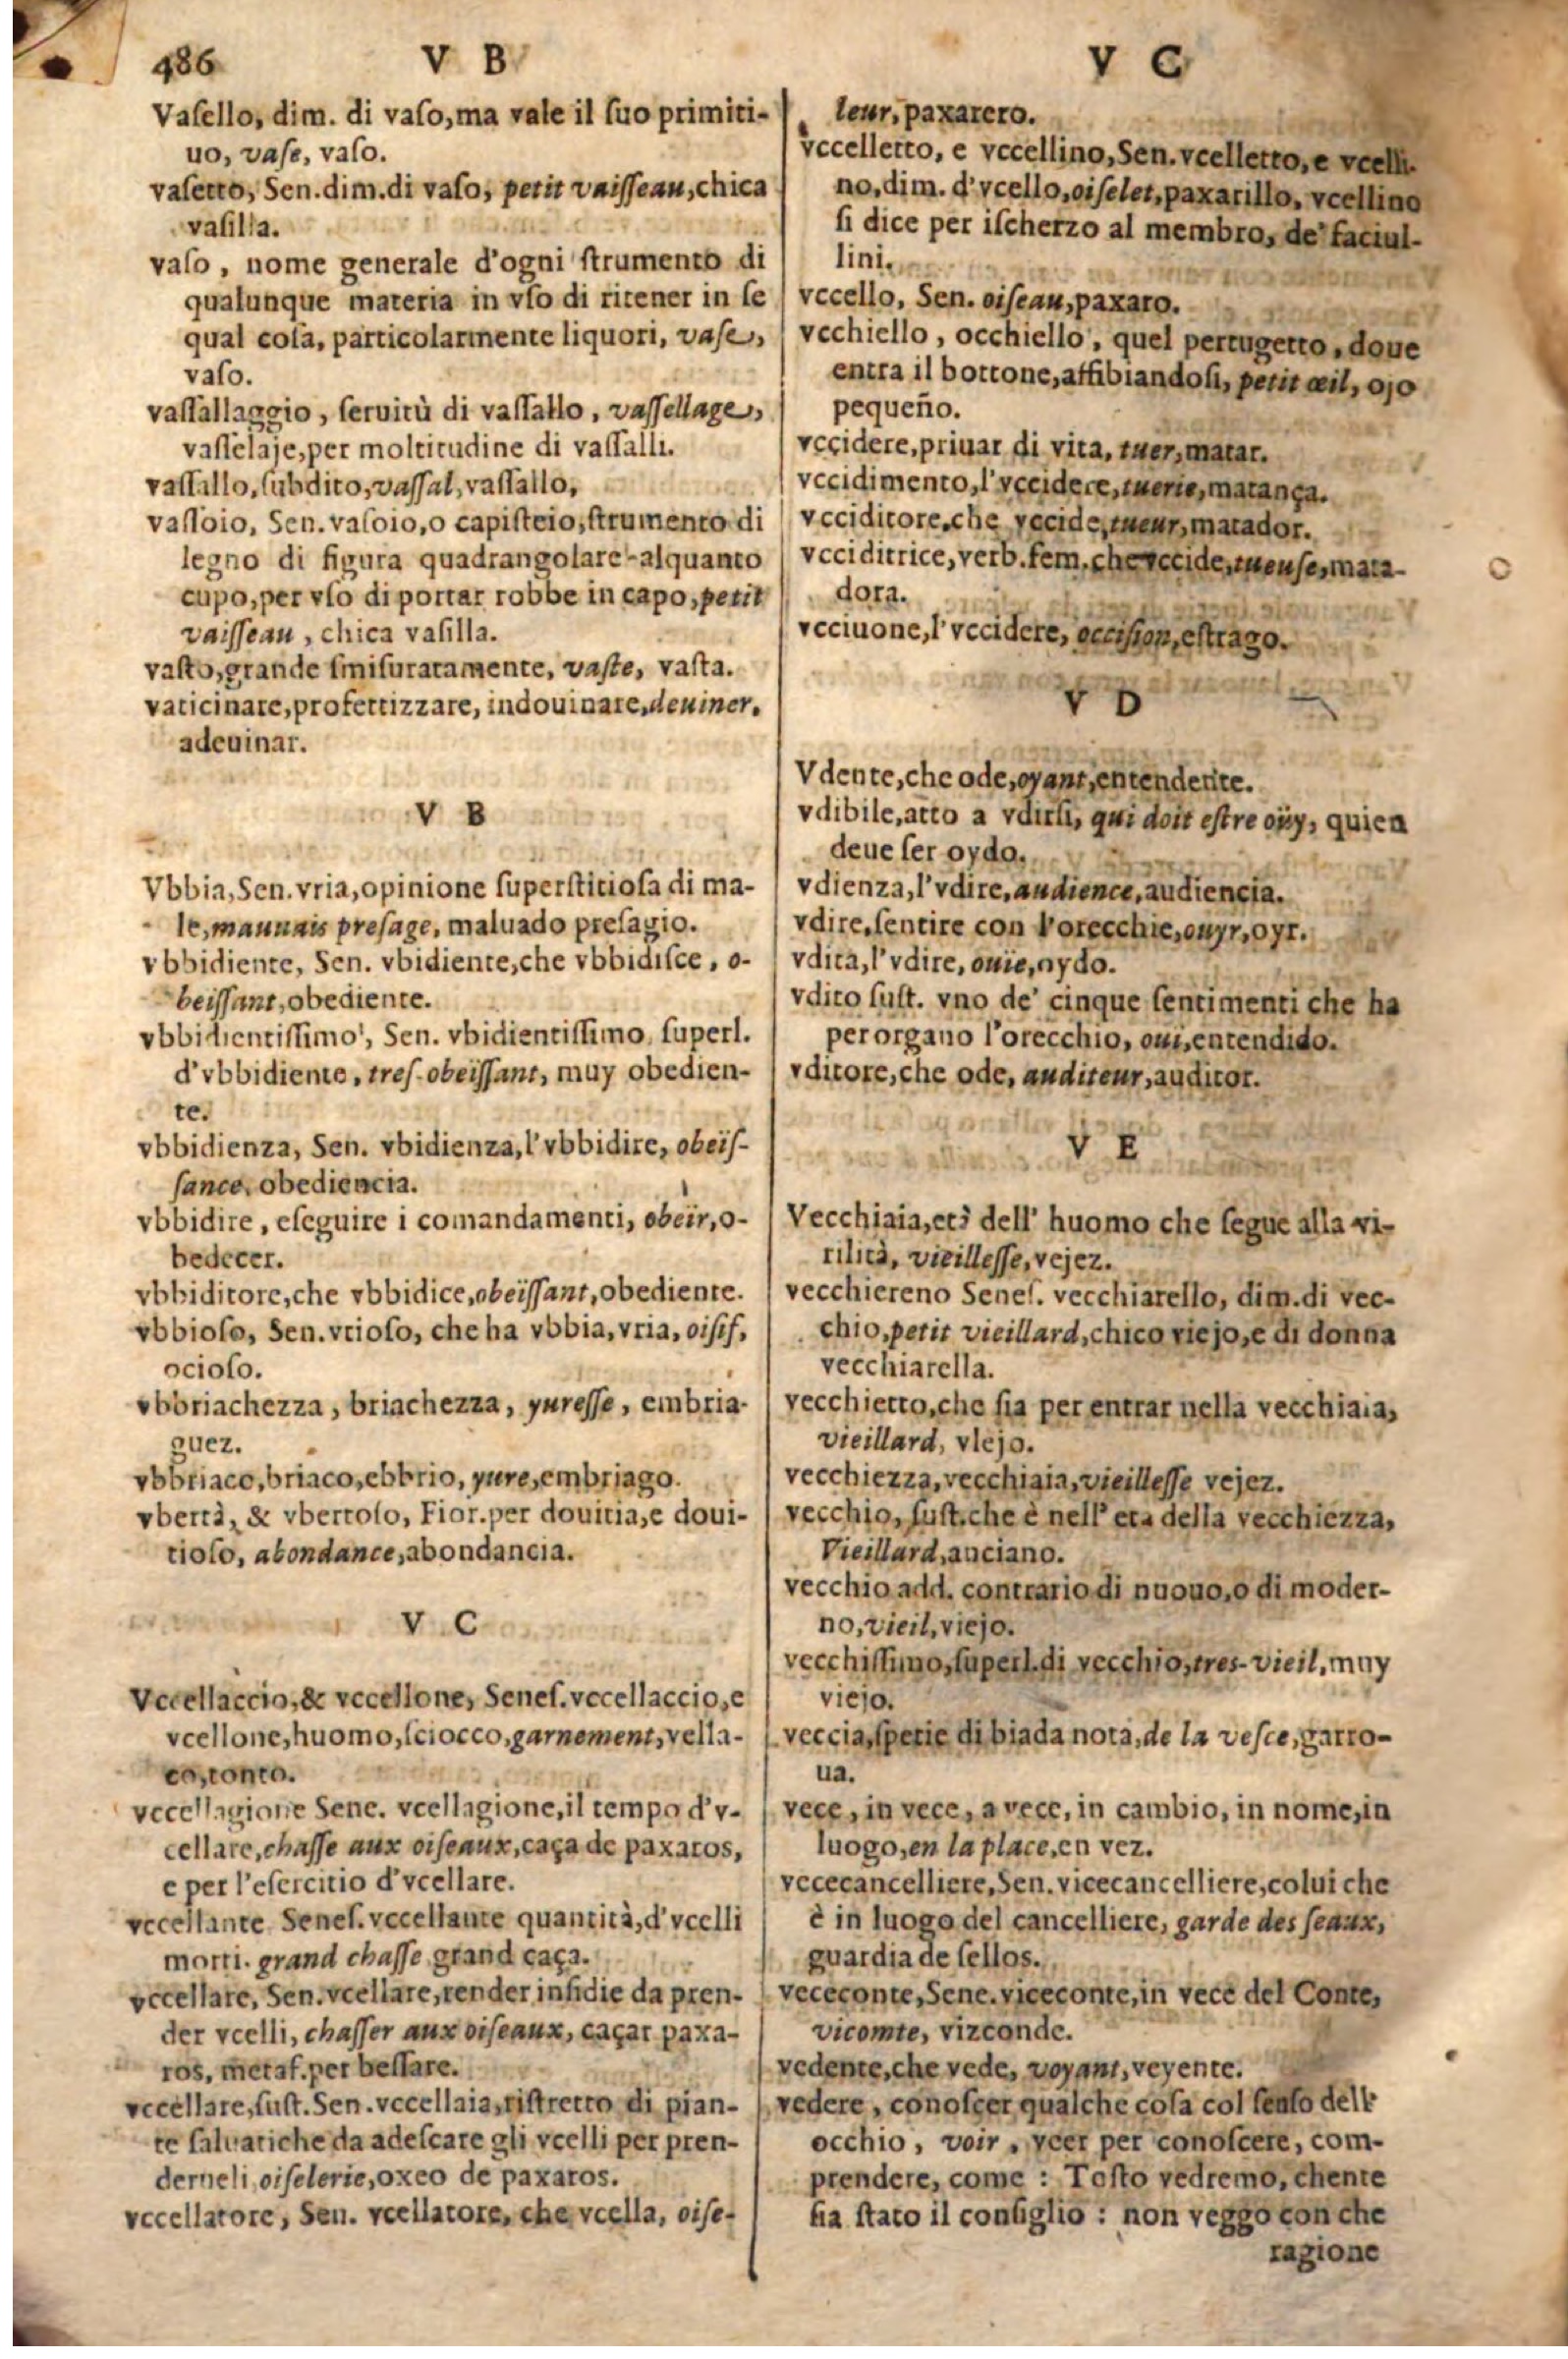 486 V B
Vaſello, dim. di vaſo,ma vale il ſuo primiti-
uo, vaſe, vaſo.
vaſetto, Sen.dim.di vaſo, petit vaiſſeau,chica
vaſilla.
vaſo, nome generale d'ogni ſtrumento di
qualunque materia in vſo di ritener in ſe
qual coſa, particolarmente liquori, vaſe,
vaſo.
vaſſallaggio, ſeruitù di vaſſallo, vaſſellage,
vaſſelaje,per moltitudine di vaſſalli.
vaſſallo,ſubdito,vaſſal,vaſſallo,
vaſſoio, Sen.vaſoio,o capiſteio,ſtrumento di
legno di figura quadrangolare alquanto
cupo,per vſo di portar robbe in capo,petit
vaiſſeau, chica vaſilla.
vaſto,grande ſmiſuratamente, vaſte, vaſta.
vaticinare,profettizzare, indouinare,deuiner,
adeuinar.
V B
Vbbia,Sen.vria,opinione ſuperſtitioſa di ma-
le,mauuais preſage, maluado preſagio.
vbbidiente, Sen. vbidiente,che vbbidiſce, o-
beiſſant,obediente.
vbbidientiſſimo, Sen. vbidientiſſimo, ſuperl.
d'vbbidiente, treſ-obeïſſant, muy obedien-
te.
vbbidienza, Sen. vbidienza,l'vbbidire, obeïſ-
ſance, obediencia.
vbbidire, eſeguire i comandamenti, obeïr,o-
bedecer.
vbbiditore,che vbbidice,obeïſſant,obediente.
vbbioſo, Sen.vrioſo, che ha vbbia,vria, oiſif,
ocioſo.
vbbriachezza, briachezza, yureſſe, embria-
guez.
vbbriaco,briaco,ebbrio, yure,embriago.
vbertà, & vbertoſo, Fior.per douitia,e doui-
tioſo, abondance,abondancia.
V C
Vccellaccio,& vccellone, Seneſ.vccellaccio,e
vcellone,huomo,ſciocco,garnement,vella-
co,tonto.
vccellagione Sene. vcellagione,il tempo d'v-
cellare,chaſſe aux oiſeaux,caça de paxaros,
e per l'eſercitio d'vcellare.
vccellante Seneſ.vccellante quantità,d'vcelli
morti. grand chaſſe grand caça.
vccellare, Sen.vcellare,tender inſidie da pren-
der vcelli, chaſſer aux oiſeaux, caçar paxa-
ros, metaf.per beſſare.
vccellare,ſuſt.Sen.vccellaia,riſtretto di pian-
te ſaluatiche da adeſcare gli vcelli per pren-
derueli,oiſelerie,oxeo de paxaros.
vccellatore, Sen. vcellatore, che vcella, oiſe-
V C
leur,paxarero.
vccelletto, e vccellino,Sen.vcelletto,e vcelli-
no,dim. d'vcello,oiſelet,paxarillo, vcellino
ſi dice per iſcherzo al membro, de' faciul-
lini.
vccello, Sen. oiſeau,paxaro.
vcchiello, occhiello, quel pertugetto, doue
entra il bottone,affibiandoſi, petit œil, ojo
pequeño.
vccidere,priuar di vita, tuer,matar.
vccidimento,l'vccidere,tuerie,matança.
vcciditore,che vccide,tueur,matador.
vcciditrice,verb.fem.che vccide,tueuſe,mata-
dora.
vcciuone,l'vccidere, occiſion,eſtrago.
V D
Vdente,che ode,oyant,entendente.
vdibile,atto a vdirſi, qui doit eſtre oüy, quien
deue ſer oydo.
vdienza,l'vdire,audience,audiencia.
vdire,ſentire con l'orecchie,ouyr,oyr.
vdita,l'vdire,ouïe,oydo.
vdito ſuſt. vno de' cinque ſentimenti che ha
per organo l'orecchio, oui,entendido.
vditore,che ode, auditeur,auditor.
V E
Vecchiaia,età dell' huomo che ſegue alla vi-
rilità, vieilleſſe,vejez.
vecchiereno Seneſ. vecchiarello, dim.di vec-
chio,petit vieillard,chico viejo,e di donna
vecchiarella.
vecchietto,che ſia per entrar nella vecchiaia,
vieillard, vlejo.
vecchiezza,vecchiaia,vieilleſſe vejez.
vecchio, ſuſt.che è nell' eta della vecchiezza,
Vieillard,anciano.
vecchio add. contrario di nuouo,o di moder-
no,vieil,viejo.
vecchiſſimo,ſuperl.di vecchio,tres-vieil,muy
viejo.
veccia,ſpetie di biada nota,de la veſce,garro-
ua.
vece, in vece, a vece, in cambio, in nome,in
luogo,en la place,en vez.
vececancelliere,Sen.vicecancelliere,colui che
è in luogo del cancelliere, garde des ſeaux,
guardia de ſellos.
vececonte,Sene.viceconte,in vece del Conte,
vicomte, vizconde.
vedente,che vede, voyant,veyente.
vedere, conoſcer qualche coſa col ſenſo dell'
occhio, voir, veer per conoſcere, com-
prendere, come : Toſto vedremo, chente
ſia ſtato il conſiglio : non veggo con che
ragione